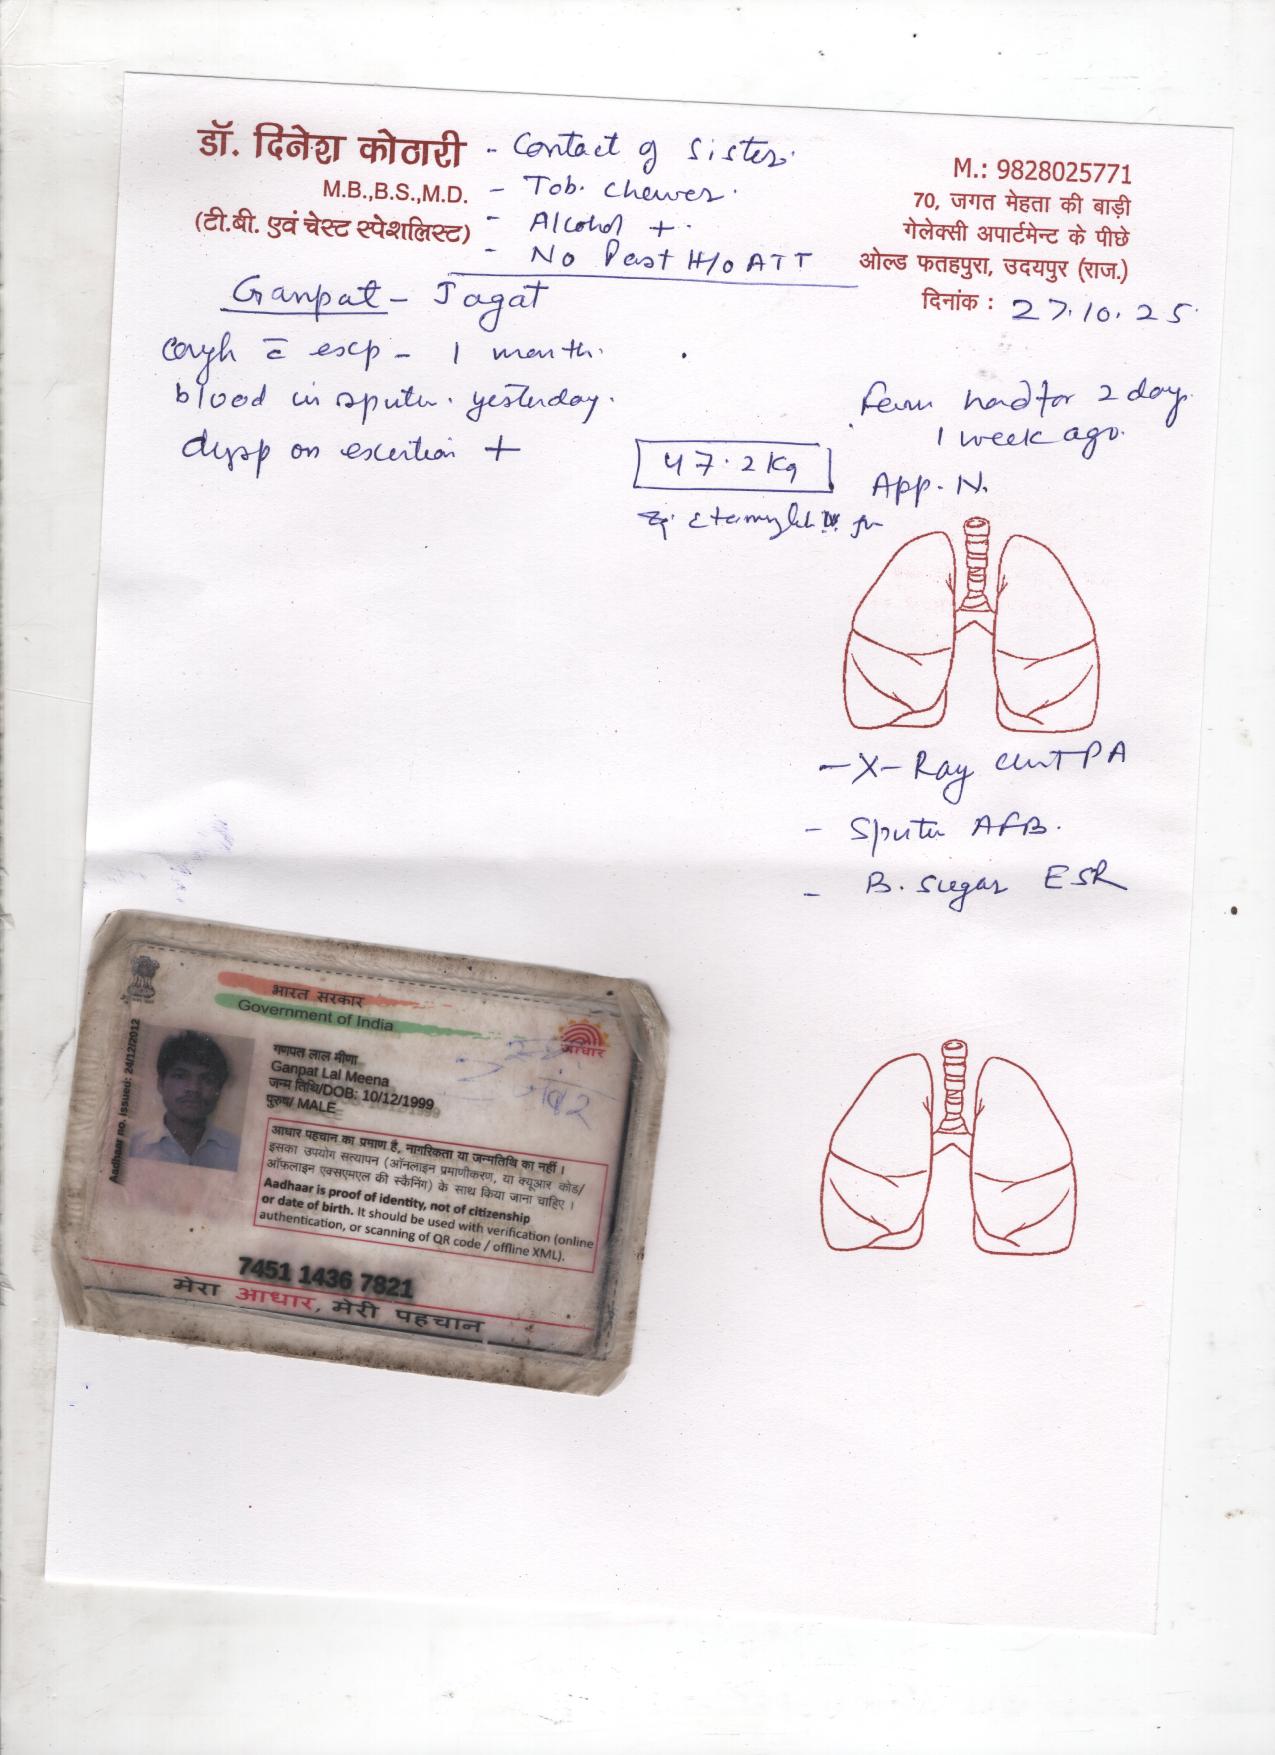 डॉ. दिनेश कोठारी
M.B.,B.S.,M.D.
(टी.बी. एवं चेस्ट स्पेशलिस्ट)
- Contact of Sister.
- Tob. Chewer.
- Alcohol +.
- No Past H/o ATT
M.: 9828025771
70, जगत मेहता की बाड़ी
गेलेक्सी अपार्टमेन्ट के पीछे
ओल्ड फतहपुरा, उदयपुर (राज.)
दिनांक : 27.10.25
Ganpat - Jagat
Cough c̄ exp - 1 month.
blood in sputum. yesterday.
dysp on exertion +
47.2 Kg
fever had for 2 day.
1 week ago.
App. N.
- X-Ray chest PA
- Sputum AFB.
- B. Sugar ESR
भारत सरकार
Government of India
आधार
Aadhaar no. issued: 24/12/2012
गणपत लाल मीणा
Ganpat Lal Meena
जन्म तिथि/DOB: 10/12/1999
पुरुष/ MALE
आधार पहचान का प्रमाण है, नागरिकता या जन्मतिथि का नहीं ।
इसका उपयोग सत्यापन (ऑनलाइन प्रमाणीकरण, या क्यूआर कोड/
ऑफलाइन एक्सएमएल की स्कैनिंग) के साथ किया जाना चाहिए ।
Aadhaar is proof of identity, not of citizenship
or date of birth. It should be used with verification (online
authentication, or scanning of QR code / offline XML).
7451 1436 7821
मेरा आधार, मेरी पहचान